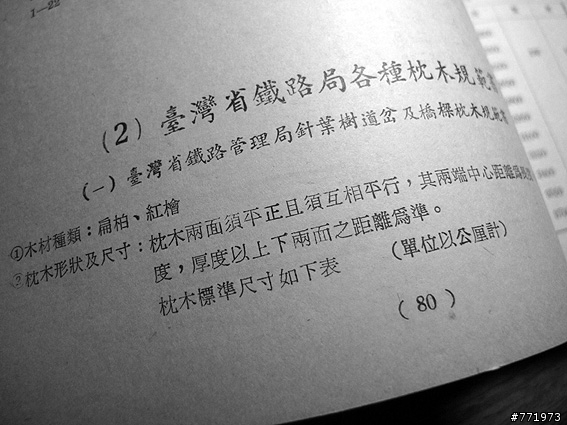 1—22
(2) 臺灣省鐵路局各種枕木規範
(一) 臺灣省鐵路管理局針葉樹道岔及橋樑枕木規範
①木材種類：扁柏、紅檜
②枕木形狀及尺寸：枕木兩面須平正且須互相平行，其兩端中心距離為長
度，厚度以上下兩面之距離為準。
枕木標準尺寸如下表 (單位以公厘計)
(80)
#771973